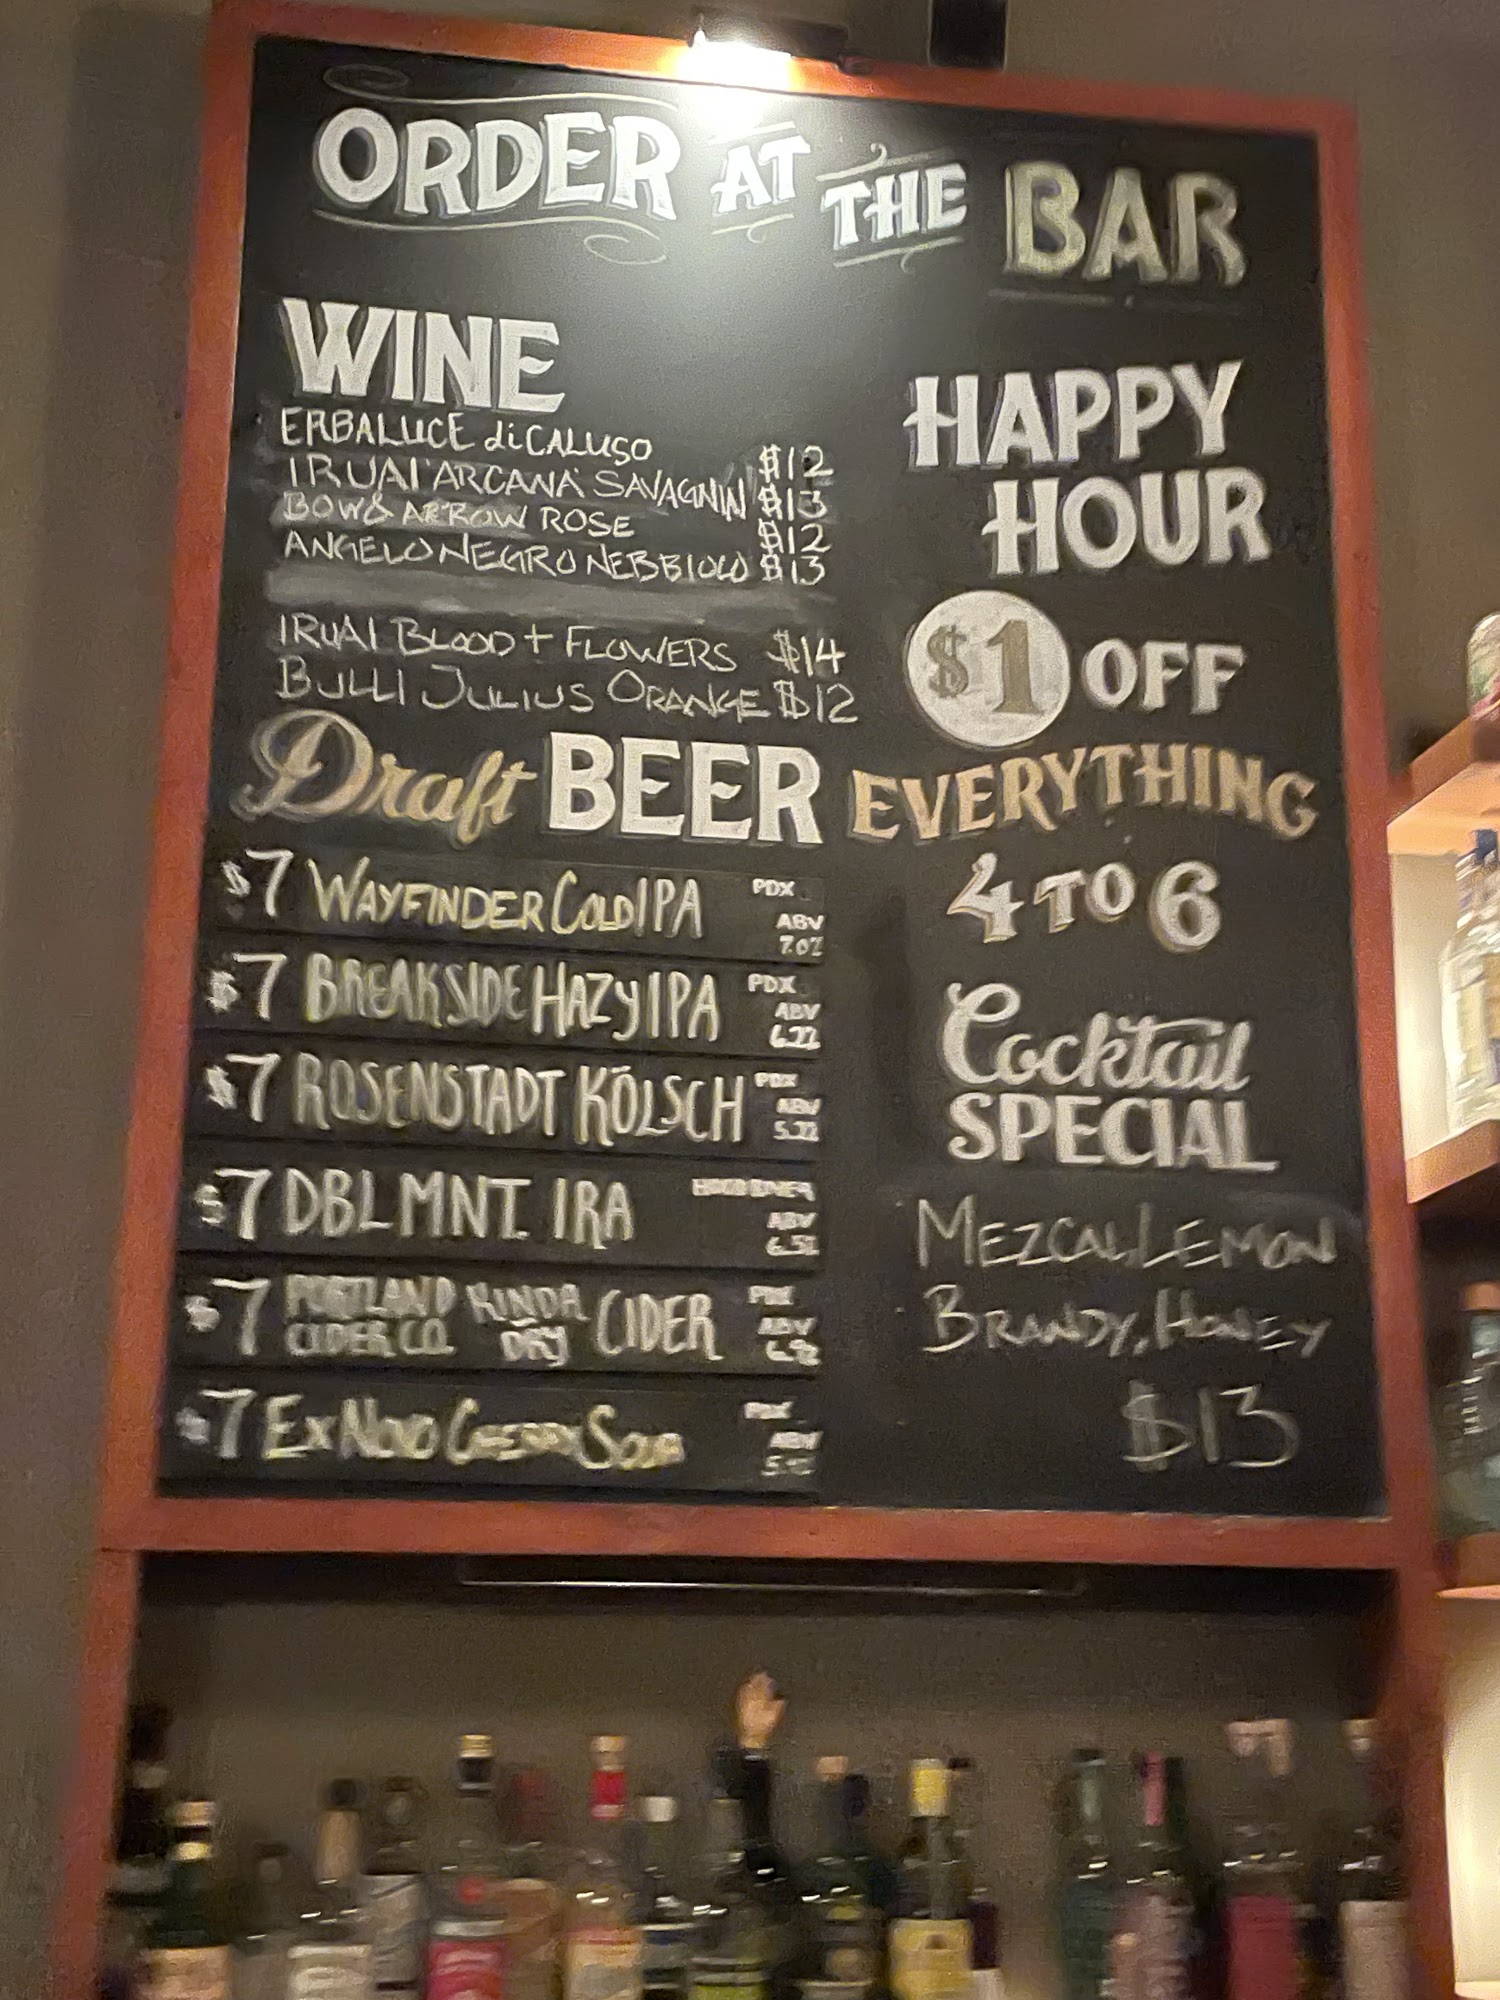 ORDER AT THE BAR
WINE
ERBALUCE di CALUSO $12
IRUAI "ARCANA" SAVAGNIN $13
BOW & ARROW ROSE $12
ANGELO NEGRO NEBBIOLO $13
IRUAI BLOOD + FLOWERS $14
BULLI JULIUS ORANGE $12
Draft BEER
$7 WAYFINDER COLD IPA PDX
ABV
7.0%
$7 BREAKSIDE HAZY IPA PDX
ABV
6.2%
$7 ROSENSTADT KÖLSCH PDX
ABV
5.2%
$7 DBL MNT. IRA HOOD RIVER
ABV
6.5%
$7 PORTLAND CIDER CO. KINDA DRY CIDER PDX
ABV
$7 EX NOVO SOUR PDX
ABV
HAPPY
HOUR
$1 OFF
EVERYTHING
4 TO 6
Cocktail
SPECIAL
MEZCAL, LEMON
BRANDY, HONEY
$13